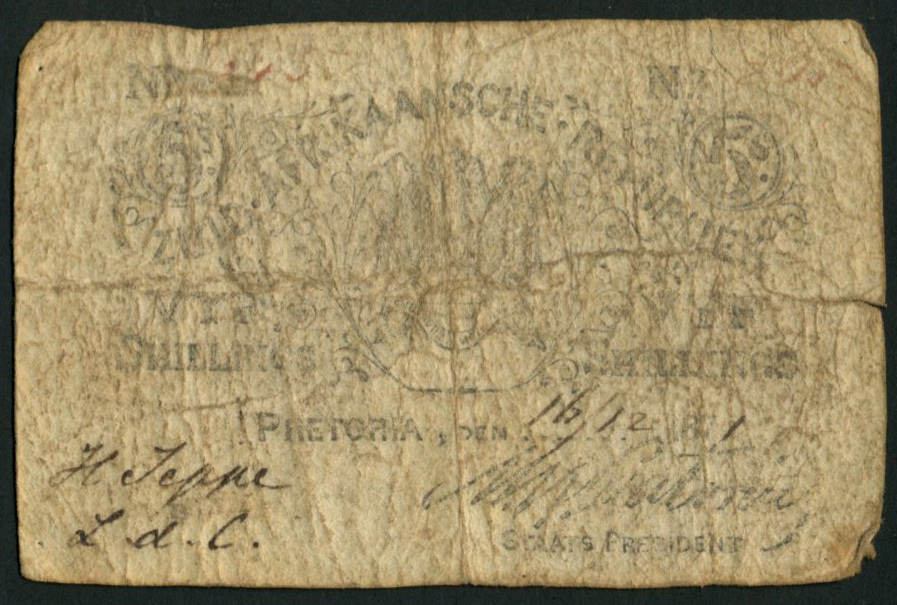 No. No.
5 5
ZUID.AFRIKAANSCHE.REPUBLIEK
VYF VYF
SHILLINGS SHILLINGS
PRETORIA, DEN 16/12 1871
H Jeppe
L.d.C.
STAATS PRESIDENT